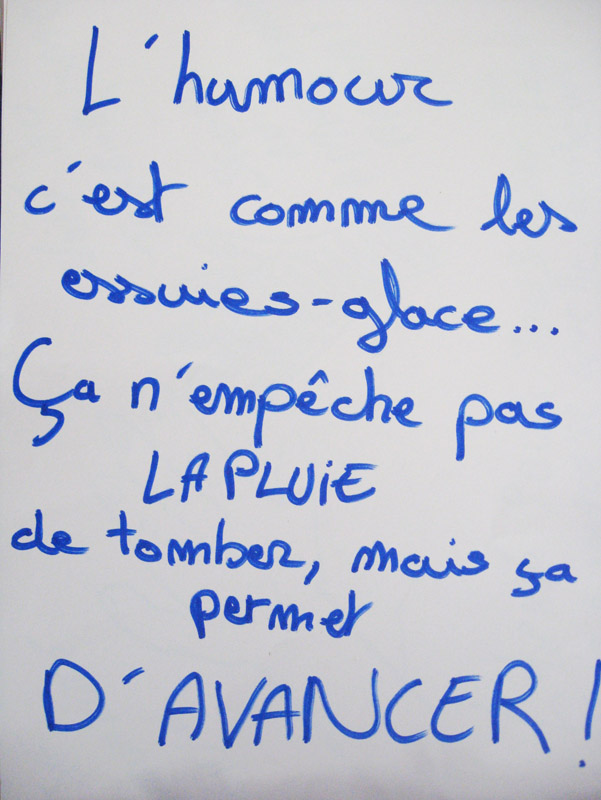 L'humour
c'est comme les
essuies-glace...
Ça n'empêche pas
LA PLUIE
de tomber, mais ça
permet
D'AVANCER !